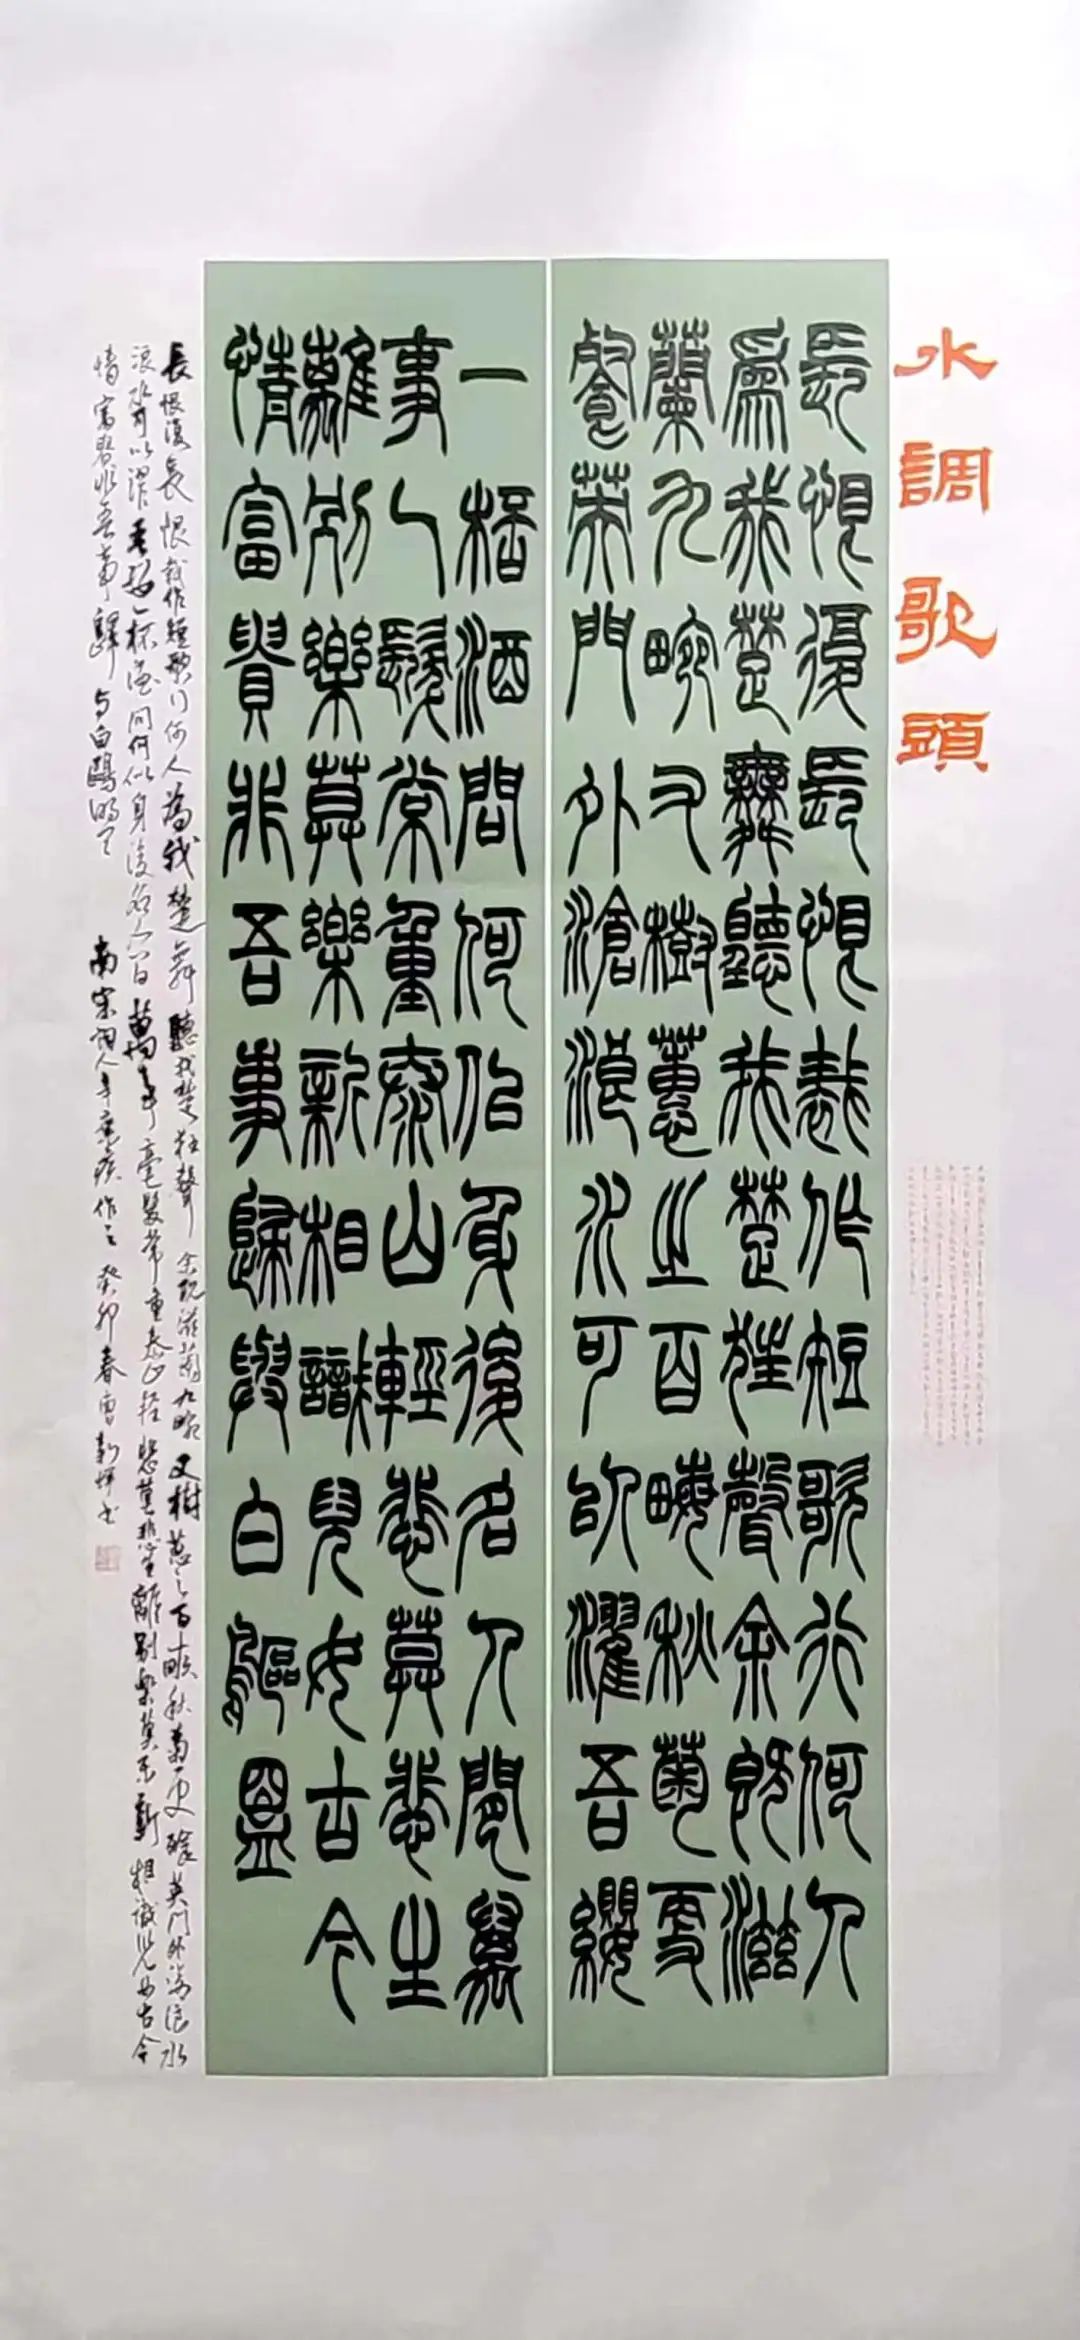 水調歌頭
長恨復長恨裁作短歌行何人
爲我楚舞聽我楚狂聲余既滋
蘭九畹又樹蕙之百畮秋菊更
餐英門外滄浪水可以濯吾纓
一桮酒問何似身後名人間萬
事髮常重泰山輕悲莫悲生
離別樂莫樂新相識兒女古今
情富貴非吾事歸與白鷗盟
長恨復長恨裁作短歌行何人為我楚舞聽我楚狂聲余既滋蘭九畹又樹蕙之百畝秋菊更餐英門外滄浪水
浪水可以濯吾纓一杯酒問何似身後名人間萬事毫髮常重泰山輕悲莫悲生離別樂莫樂新相識兒女古今
情富貴非吾事歸與白鷗盟 南宋詞人辛棄疾作之 癸卯春曹新書